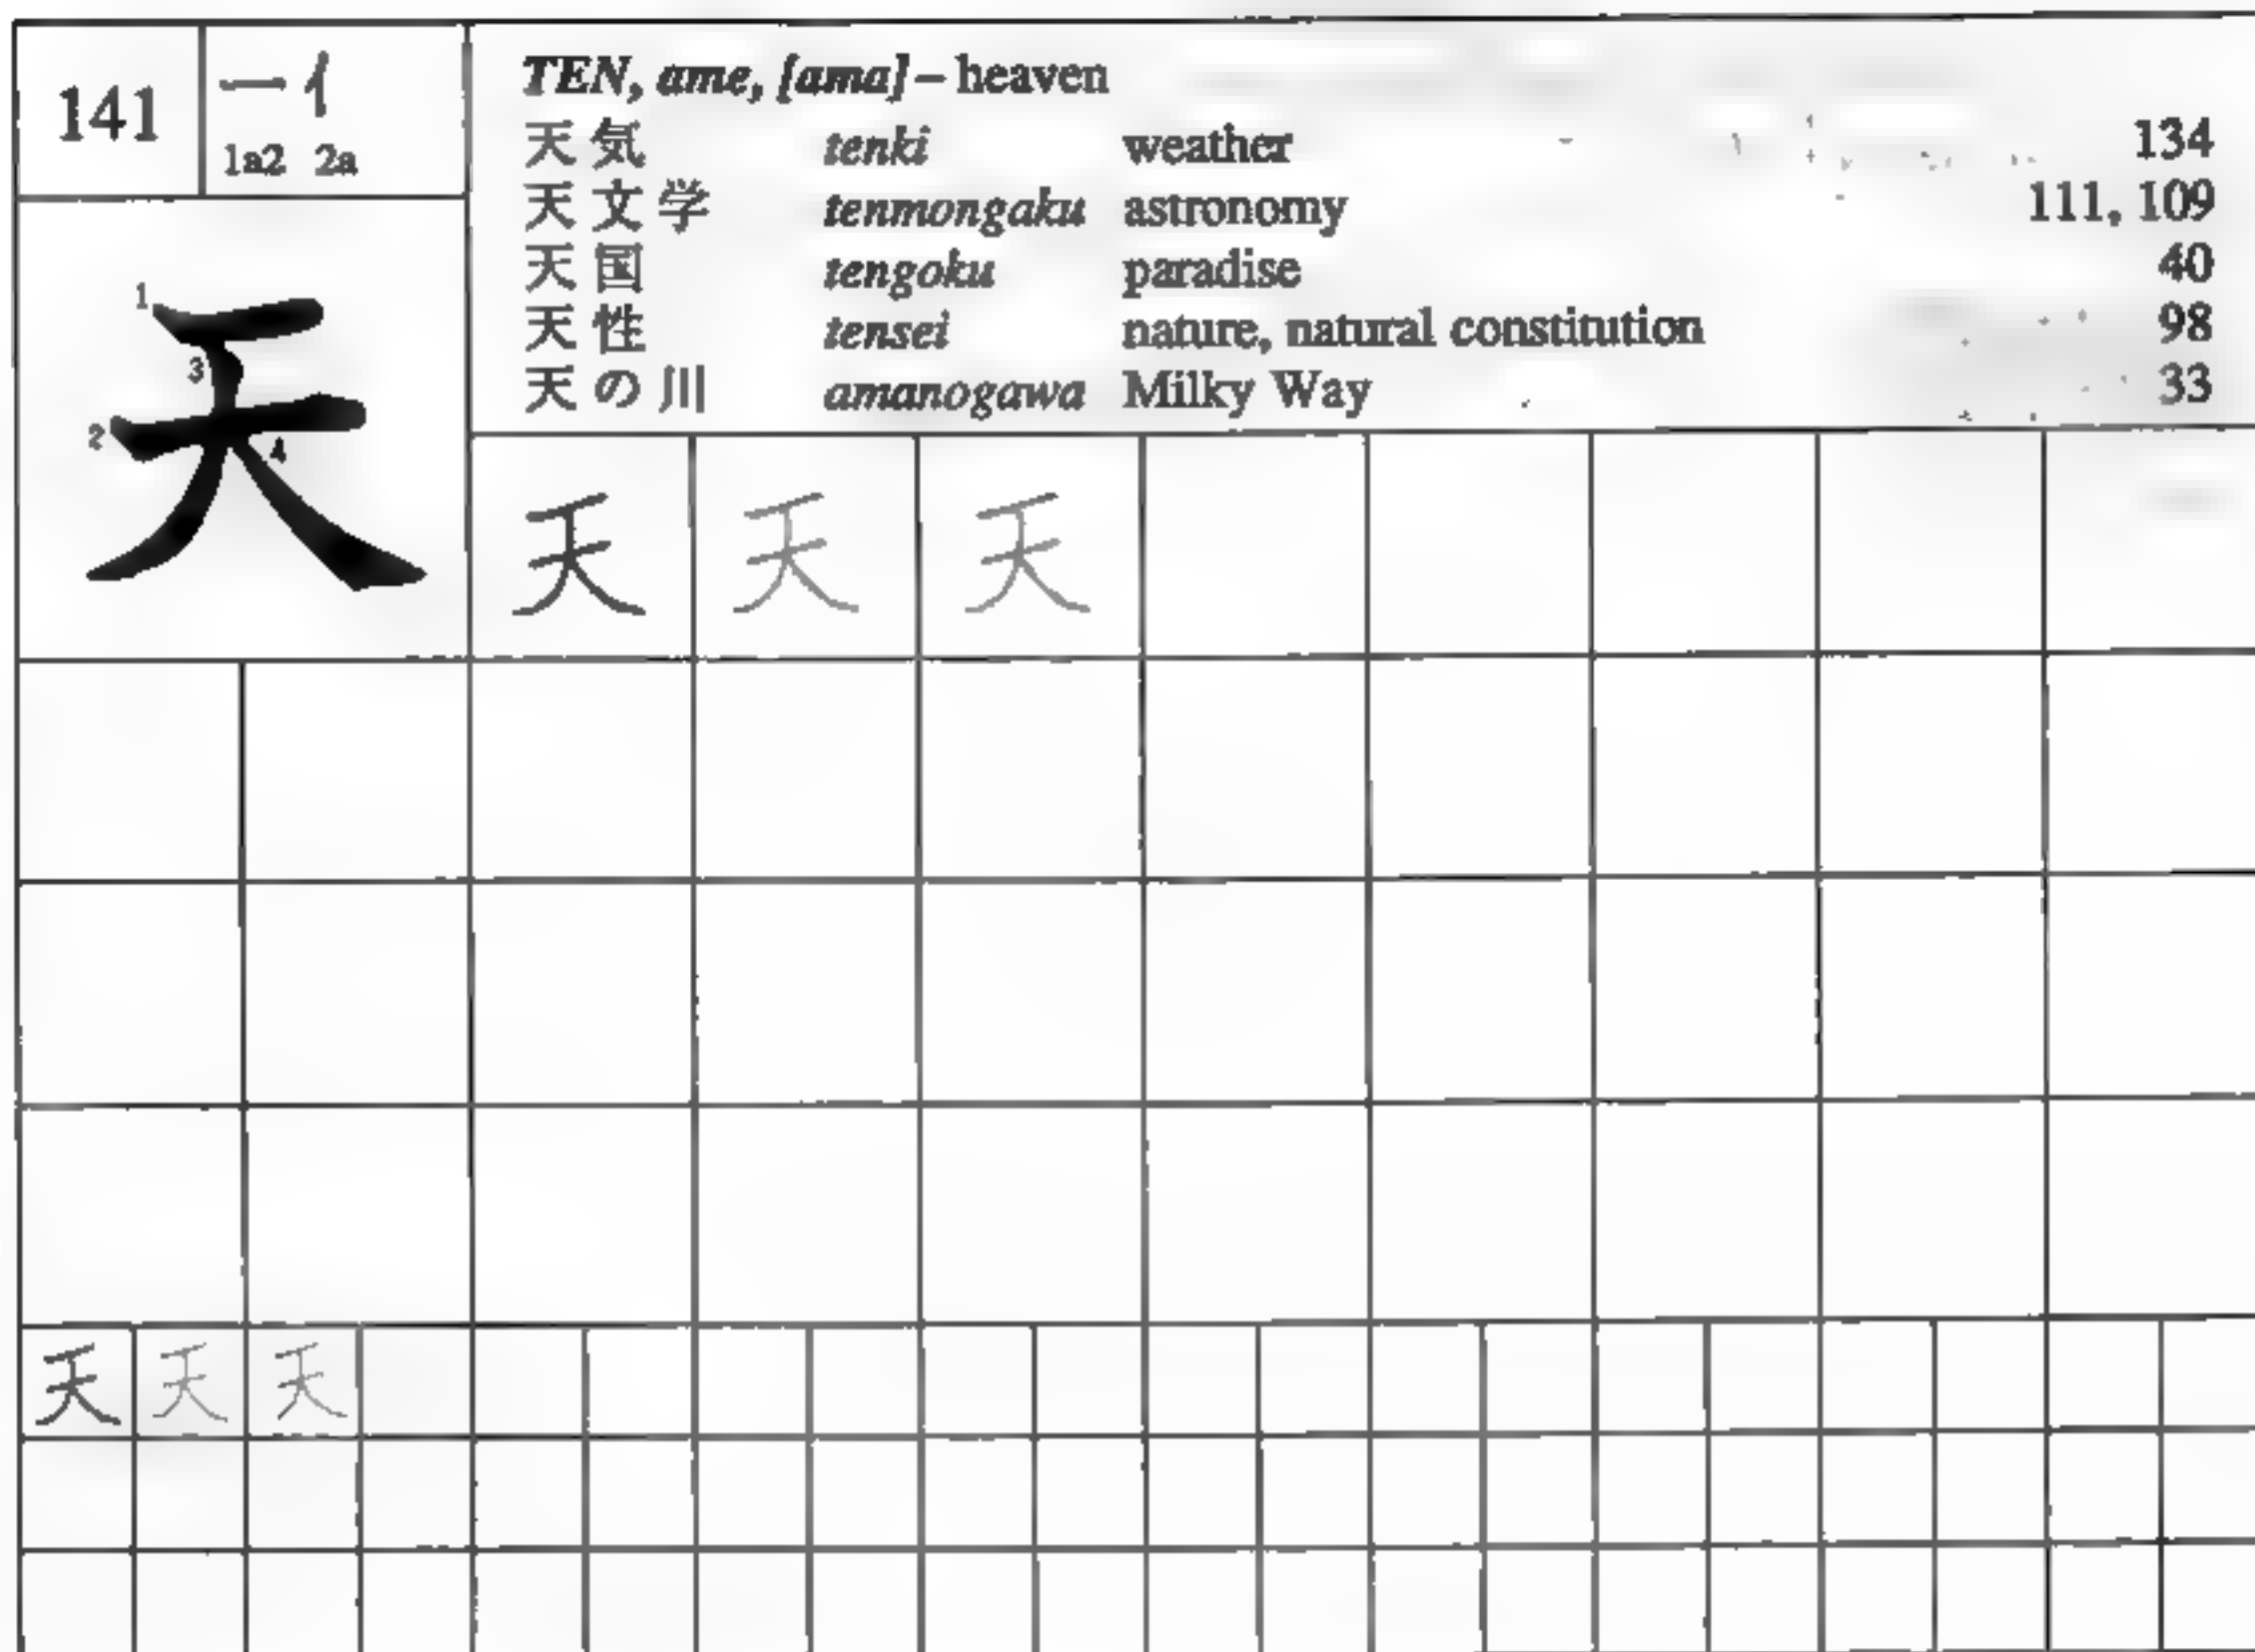 141
一 亻
1a2 2a
TEN, ame, [ama] – heaven
天気 tenki weather 134
天文学 tenmongaku astronomy 111, 109
天国 tengoku paradise 40
天性 tensei nature, natural constitution 98
天の川 amanogawa Milky Way 33
1
3
2
4
天
天 天 天
天 天 天